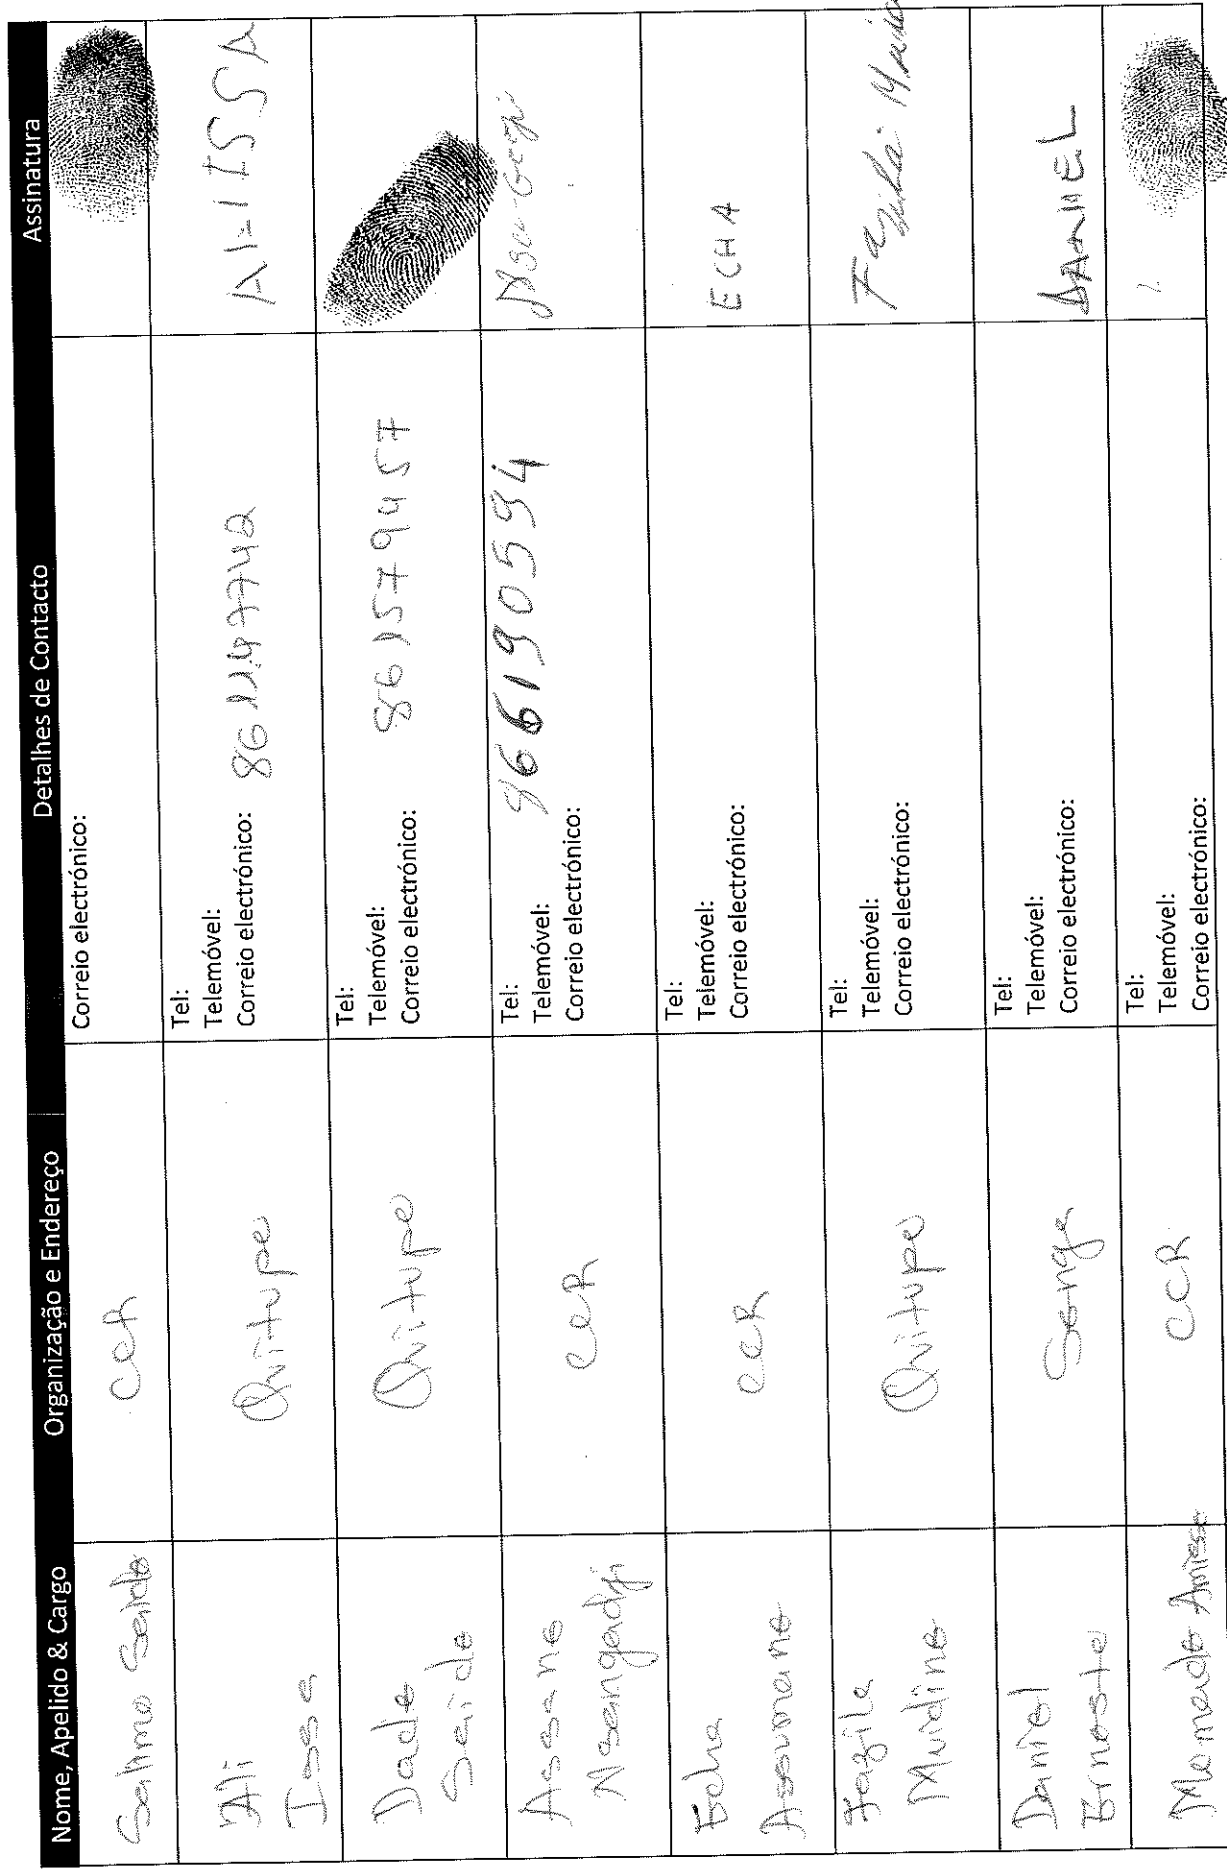 Nome, Apelido & Cargo Organização e Endereço Detalhes de Contacto Assinatura
Salimo Saide CCR Correio electrónico:
Ali Issa Quitupo Tel:
Telemóvel:
Correio electrónico: 861147742 ALI ISSA
Dade Saide Quitupo Tel:
Telemóvel:
Correio electrónico: 861579457
Assane Nsangadji CCR Tel:
Telemóvel: 866190594
Correio electrónico:
Echa Assumane CCR Tel:
Telemóvel:
Correio electrónico: ECHA
Fazila Muidine Quitupo Tel:
Telemóvel:
Correio electrónico: Fazila
Daniel Ernesto Senga Tel:
Telemóvel:
Correio electrónico: DANIEL
Momade Amisse CCR Tel:
Telemóvel:
Correio electrónico: